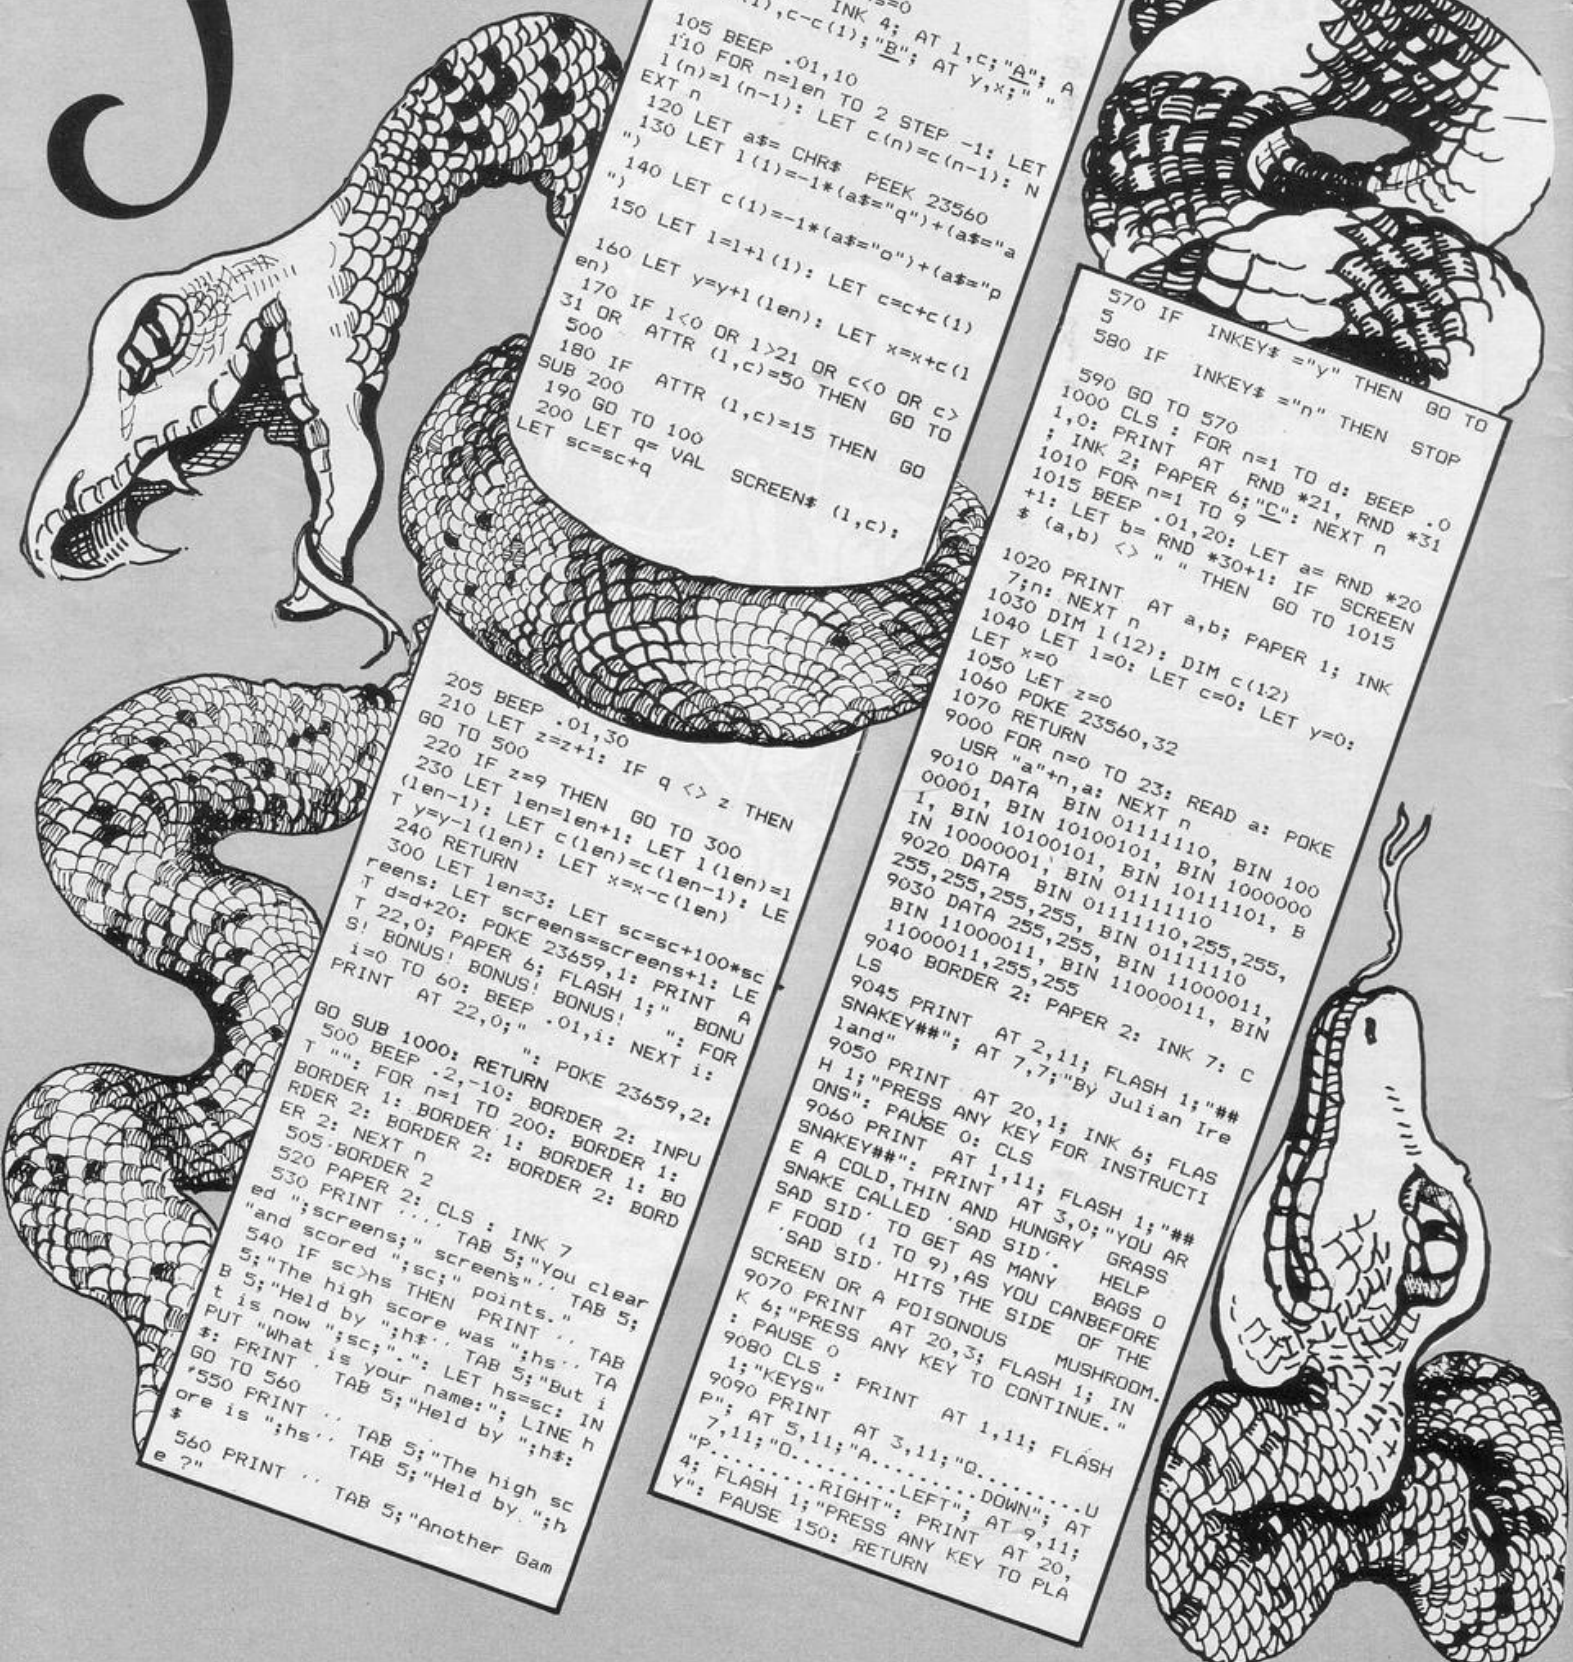 s=0
INK 4; AT l,c;"A"; A
1),c-c(1);"B"; AT y,x;" "
105 BEEP .01,10
110 FOR n=len TO 2 STEP -1: LET
l(n)=l(n-1): LET c(n)=c(n-1): N
EXT n
120 LET a$= CHR$ PEEK 23560
130 LET l(1)=-1*(a$="q")+(a$="a
")
140 LET c(1)=-1*(a$="o")+(a$="p
")
150 LET l=l+l(1): LET c=c+c(1)
160 LET y=y+l(len): LET x=x+c(l
en)
170 IF l<0 OR l>21 OR c<0 OR c>
31 OR ATTR (l,c)=50 THEN GO TO
500
180 IF ATTR (l,c)=15 THEN GO
SUB 200
190 GO TO 100
200 LET q= VAL SCREEN$ (l,c):
LET sc=sc+q
205 BEEP .01,30
210 LET z=z+1: IF q <> z THEN
GO TO 500
220 IF z=9 THEN GO TO 300
230 LET len=len+1: LET l(len)=l
(len-1): LET c(len)=c(len-1): LE
T y=y-l(len): LET x=x-c(len)
240 RETURN
300 LET len=3: LET sc=sc+100*sc
reens: LET screens=screens+1: LE
T d=d+20: POKE 23659,1: PRINT A
T 22,0; PAPER 6; FLASH 1;" BONU
S! BONUS! BONUS! BONUS! ": FOR
i=0 TO 60: BEEP .01,i: NEXT i:
PRINT AT 22,0;"
": POKE 23659,2:
GO SUB 1000: RETURN
500 BEEP .2,-10: BORDER 2: INPU
T "": FOR n=1 TO 200: BORDER 1:
BORDER 1: BORDER 1: BORDER 1: BO
RDER 2: BORDER 2: BORDER 2: BORD
ER 2: NEXT n
505 BORDER 2
520 PAPER 2: CLS : INK 7
530 PRINT '''' TAB 5;"You clear
ed ";screens;" screens"'' TAB 5;
"and scored ";sc;" points."
540 IF sc>hs THEN PRINT '' TAB
5;"The high score was ";hs'' TAB
B 5;"Held by ";h$'' TAB 5;"But i
t is now ";sc;".": LET hs=sc: IN
PUT "What is your name:"; LINE h
$: PRINT ' TAB 5;"Held by ";h$:
GO TO 560
550 PRINT '' TAB 5;"The high sc
ore is ";hs'' TAB 5;"Held by ";h
$
560 PRINT '' TAB 5;"Another Gam
e ?"
570 IF INKEY$ ="y" THEN GO TO
5
580 IF INKEY$ ="n" THEN STOP
590 GO TO 570
1000 CLS : FOR n=1 TO d: BEEP .0
1,0: PRINT AT RND *21, RND *31
; INK 2; PAPER 6;"C": NEXT n
1010 FOR n=1 TO 9
1015 BEEP .01,20: LET a= RND *20
+1: LET b= RND *30+1: IF SCREEN
$ (a,b) <> " " THEN GO TO 1015
1020 PRINT AT a,b; PAPER 1; INK
7;n: NEXT n
1030 DIM l(12): DIM c(12)
1040 LET l=0: LET c=0: LET y=0:
LET x=0
1050 LET z=0
1060 POKE 23560,32
1070 RETURN
9000 FOR n=0 TO 23: READ a: POKE
USR "a"+n,a: NEXT n
9010 DATA BIN 01111110, BIN 100
00001, BIN 10100101, BIN 1000000
1, BIN 10100101, BIN 10111101, B
IN 10000001, BIN 01111110
9020 DATA BIN 01111110,255,255,
255,255,255,255, BIN 01111110
9030 DATA 255,255, BIN 11000011,
BIN 11000011, BIN 11000011, BIN
11000011,255,255
9040 BORDER 2: PAPER 2: INK 7: C
LS
9045 PRINT AT 2,11; FLASH 1;"##
SNAKEY##"; AT 7,7;"By Julian Ire
land"
9050 PRINT AT 20,1; INK 6; FLAS
H 1;"PRESS ANY KEY FOR INSTRUCTI
ONS": PAUSE 0: CLS
9060 PRINT AT 1,11; FLASH 1;"##
SNAKEY##": PRINT AT 3,0;"YOU AR
E A COLD,THIN AND HUNGRY GRASS
SNAKE CALLED 'SAD SID'. HELP
SAD SID' TO GET AS MANY BAGS O
F FOOD (1 TO 9),AS YOU CANBEFORE
'SAD SID' HITS THE SIDE OF THE
SCREEN OR A POISONOUS MUSHROOM.
9070 PRINT AT 20,3; FLASH 1; IN
K 6;"PRESS ANY KEY TO CONTINUE."
: PAUSE 0
9080 CLS : PRINT AT 1,11; FLASH
1;"KEYS"
9090 PRINT AT 3,11;"Q.........U
P"; AT 5,11;"A.........DOWN"; AT
7,11;"O.........LEFT"; AT 9,11;
"P.........RIGHT": PRINT AT 20,
4; FLASH 1;"PRESS ANY KEY TO PLA
Y": PAUSE 150: RETURN